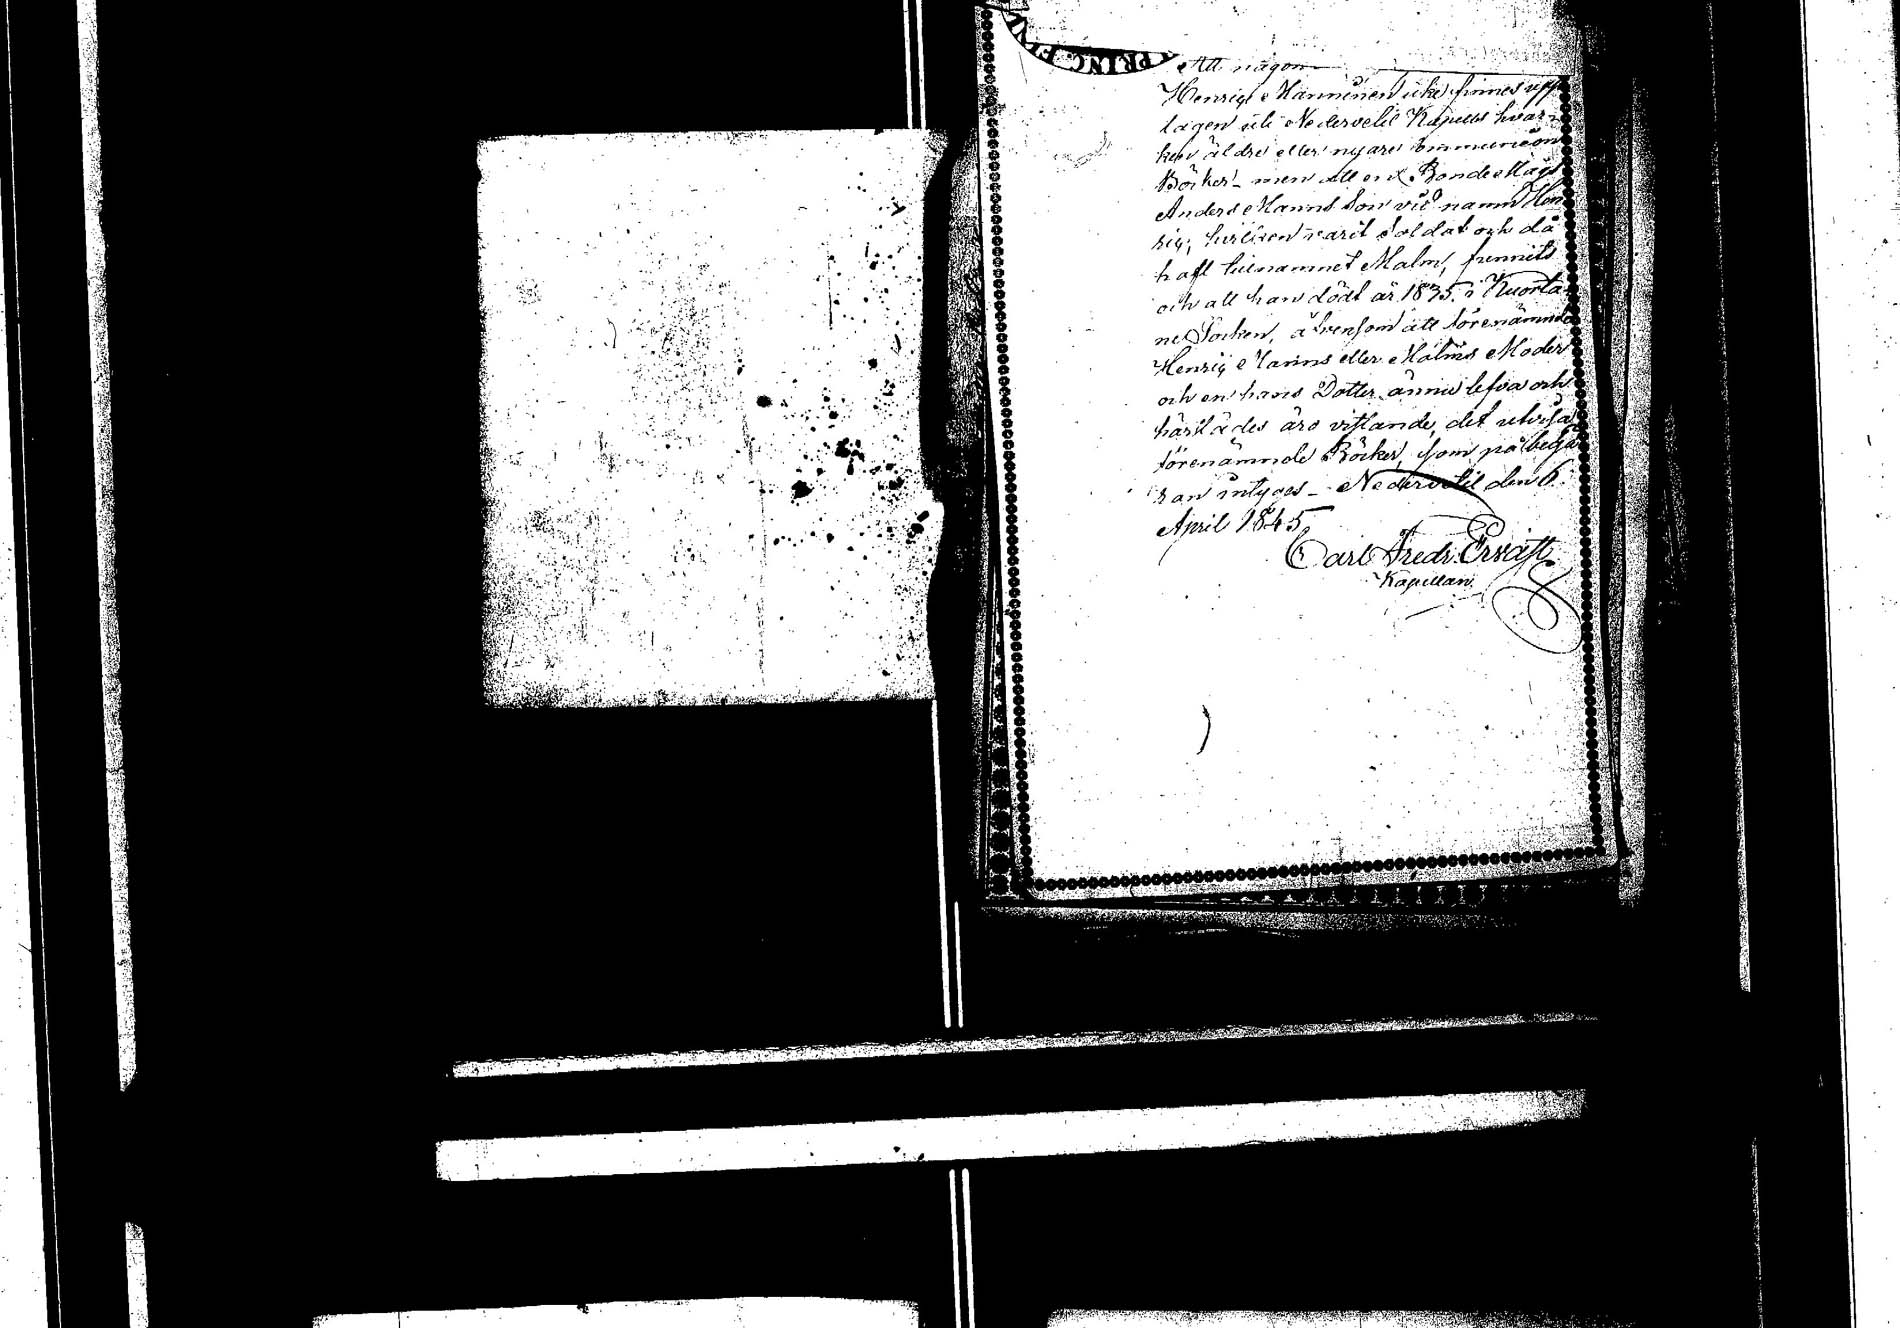 PRINC. FINL
Att någon
Henrig Manninen icke finnes upp-
tagen uti Nedervetil Kapells hvar-
ken äldre eller nyare Communion
Böcker – men att en Bonde Mågs
Anders Manns Son vid namn Hen
rig, hvilken varit Soldat och då
haft tillnamnet Malm, funnits
och att han dödt år 1835 i Kuorta-
ne Socken, äfvensom att förenämnde
Henrig Manns eller Malms Moder
och en hans Dotter ännu lefva och
härstädes äro vistande, det utvisa
förenämnde Böcker, som på begä
ran intygas – Nedervetil den 6
April 1845
Carl Fredr.
Kapellan